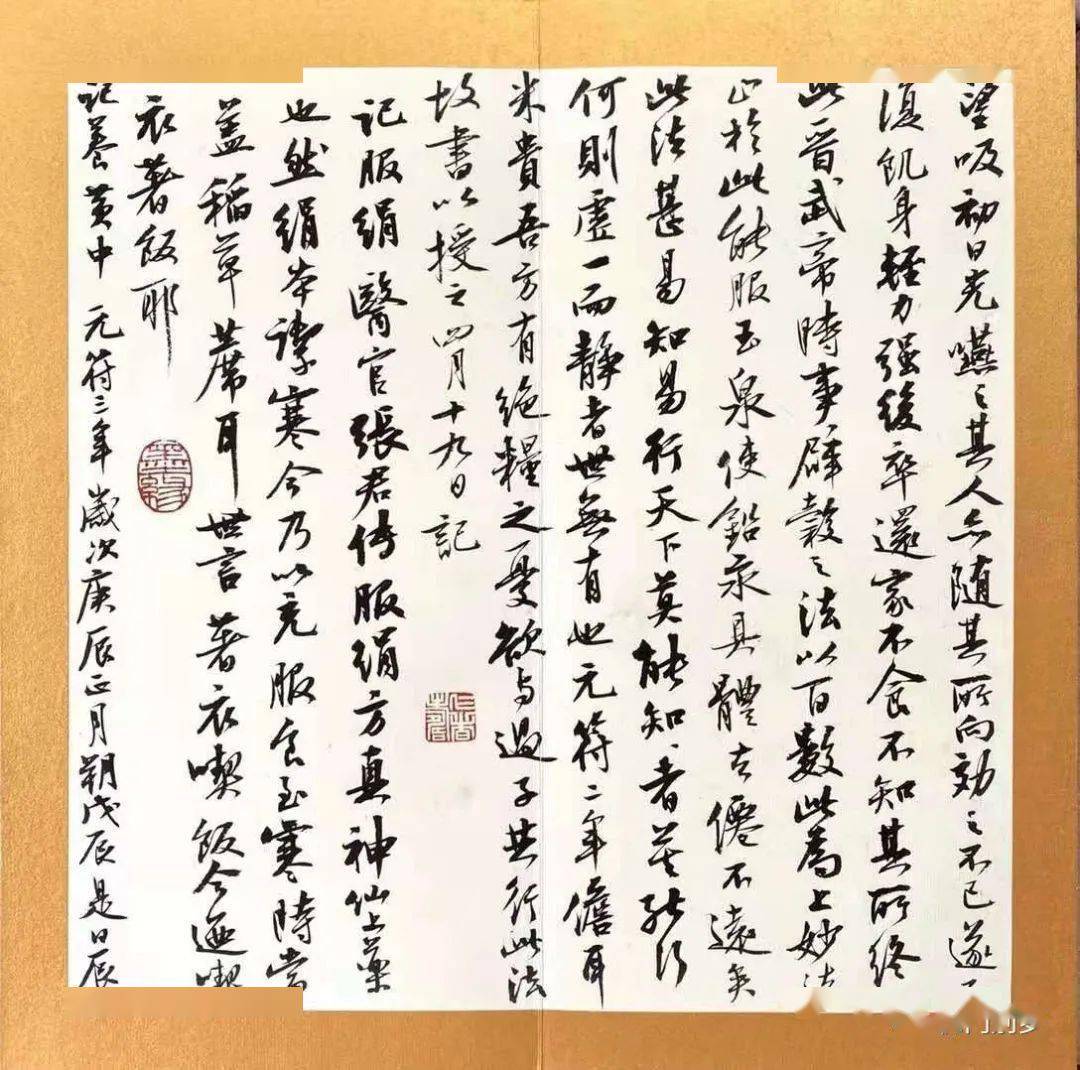 望吸初日光嚥之其人亦随其所向効之不已遂不
復飢身輕力强後卒還家不食不知其所終
此晋武帝時事辟穀之法以百數此為上妙法
止於此能服玉泉使鉛汞具體去僊不遠矣
此法甚易知易行天下莫能知知者莫能行
何則虛一而靜者世無有也元符二年儋耳
米貴吾方有絶糧之憂欲与過子共行此法
故書以授之四月十九日記
記服絹醫官張君傳服絹方真神仙上藥
也然絹本禦寒今乃以充服食至寒時當
盖稻草席耳世言著衣喫飯今迺喫
衣著飯耶
記養黄中元符三年歲次庚辰正月朔戊辰是日辰